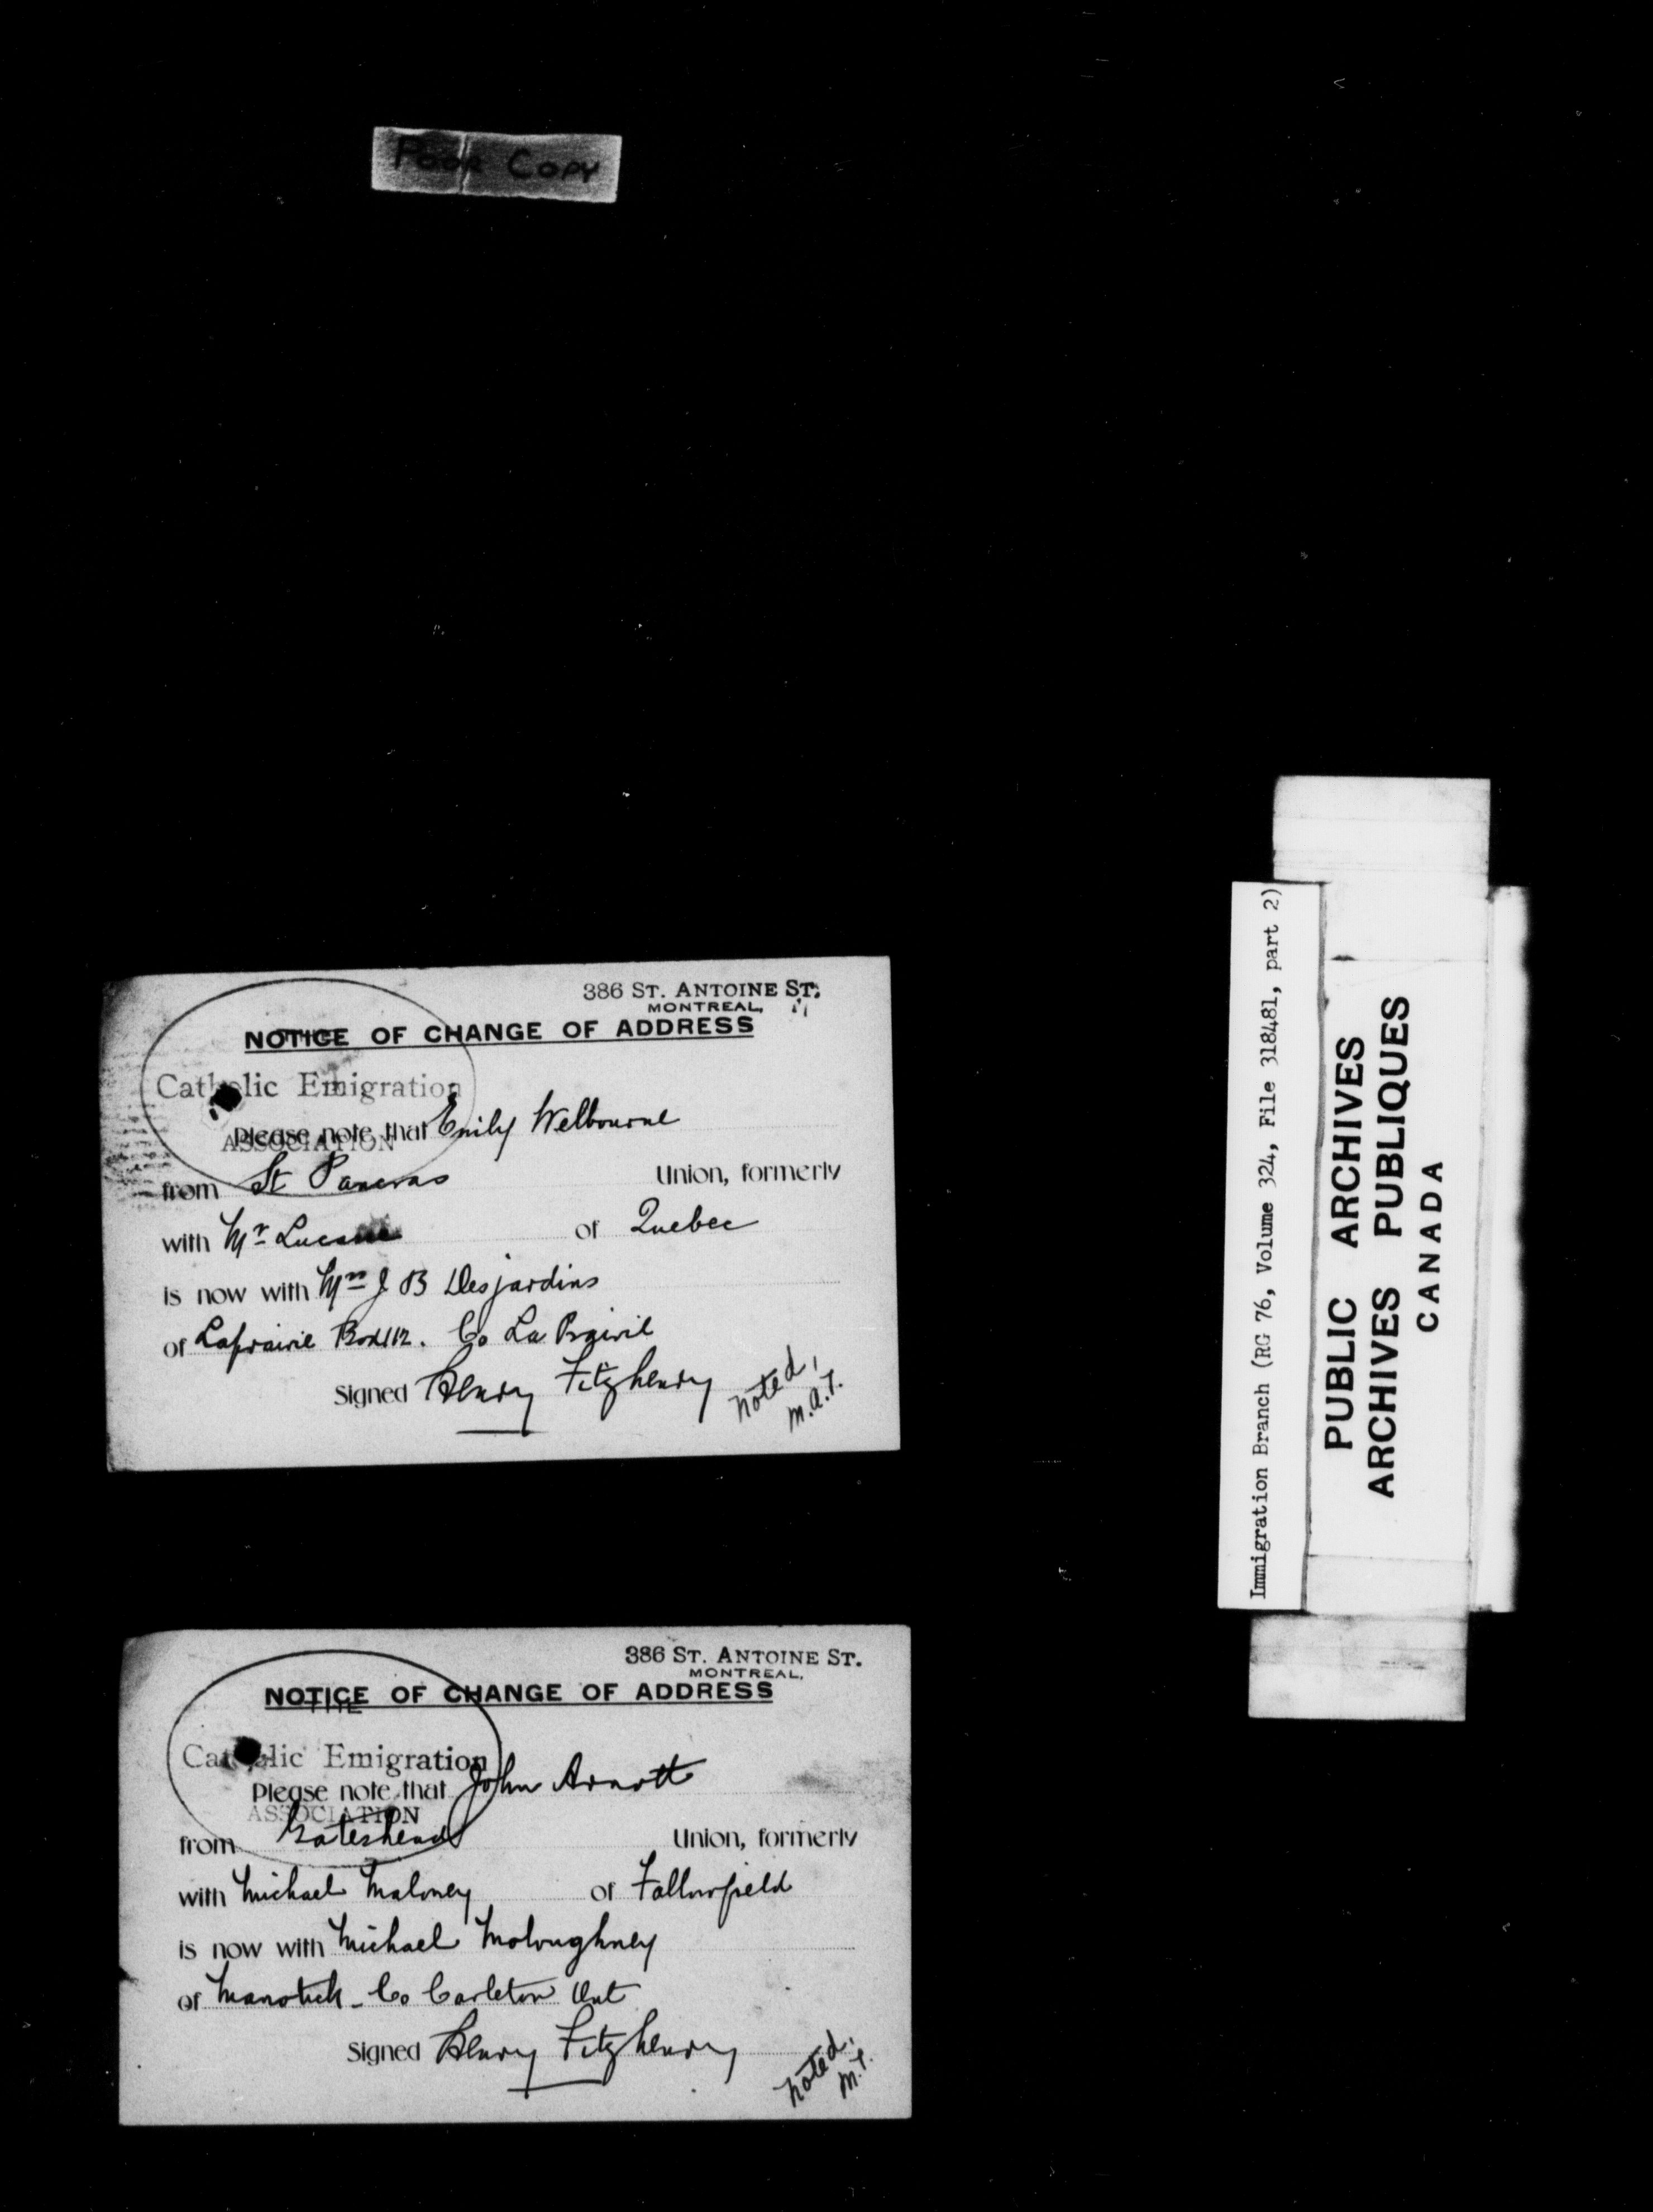 Poor Copy
386 ST. ANTOINE ST.
MONTREAL,
NOTICE OF CHANGE OF ADDRESS
THE
Catholic Emigration
ASSOCIATION
Please note that Emily Welbourne
from St Pancras Union, formerly
with Mr of Quebec
is now with Mrs J B Desjardins
of Laprairie Box 112. Co La Prairie
Signed Henry Fitzhenry
noted,
M.A.T.
386 ST. ANTOINE ST.
MONTREAL,
NOTICE OF CHANGE OF ADDRESS
THE
Catholic Emigration
ASSOCIATION
Please note that John Arnott
from Gateshead Union, formerly
with Michael Maloney of Fallowfield
is now with Michael Moloughney
of Manotick - Co Carleton Ont
Signed Henry Fitzhenry
noted,
M.T.
Immigration Branch (RG 76, Volume 324, File 318481, part 2)
PUBLIC ARCHIVES
ARCHIVES PUBLIQUES
CANADA